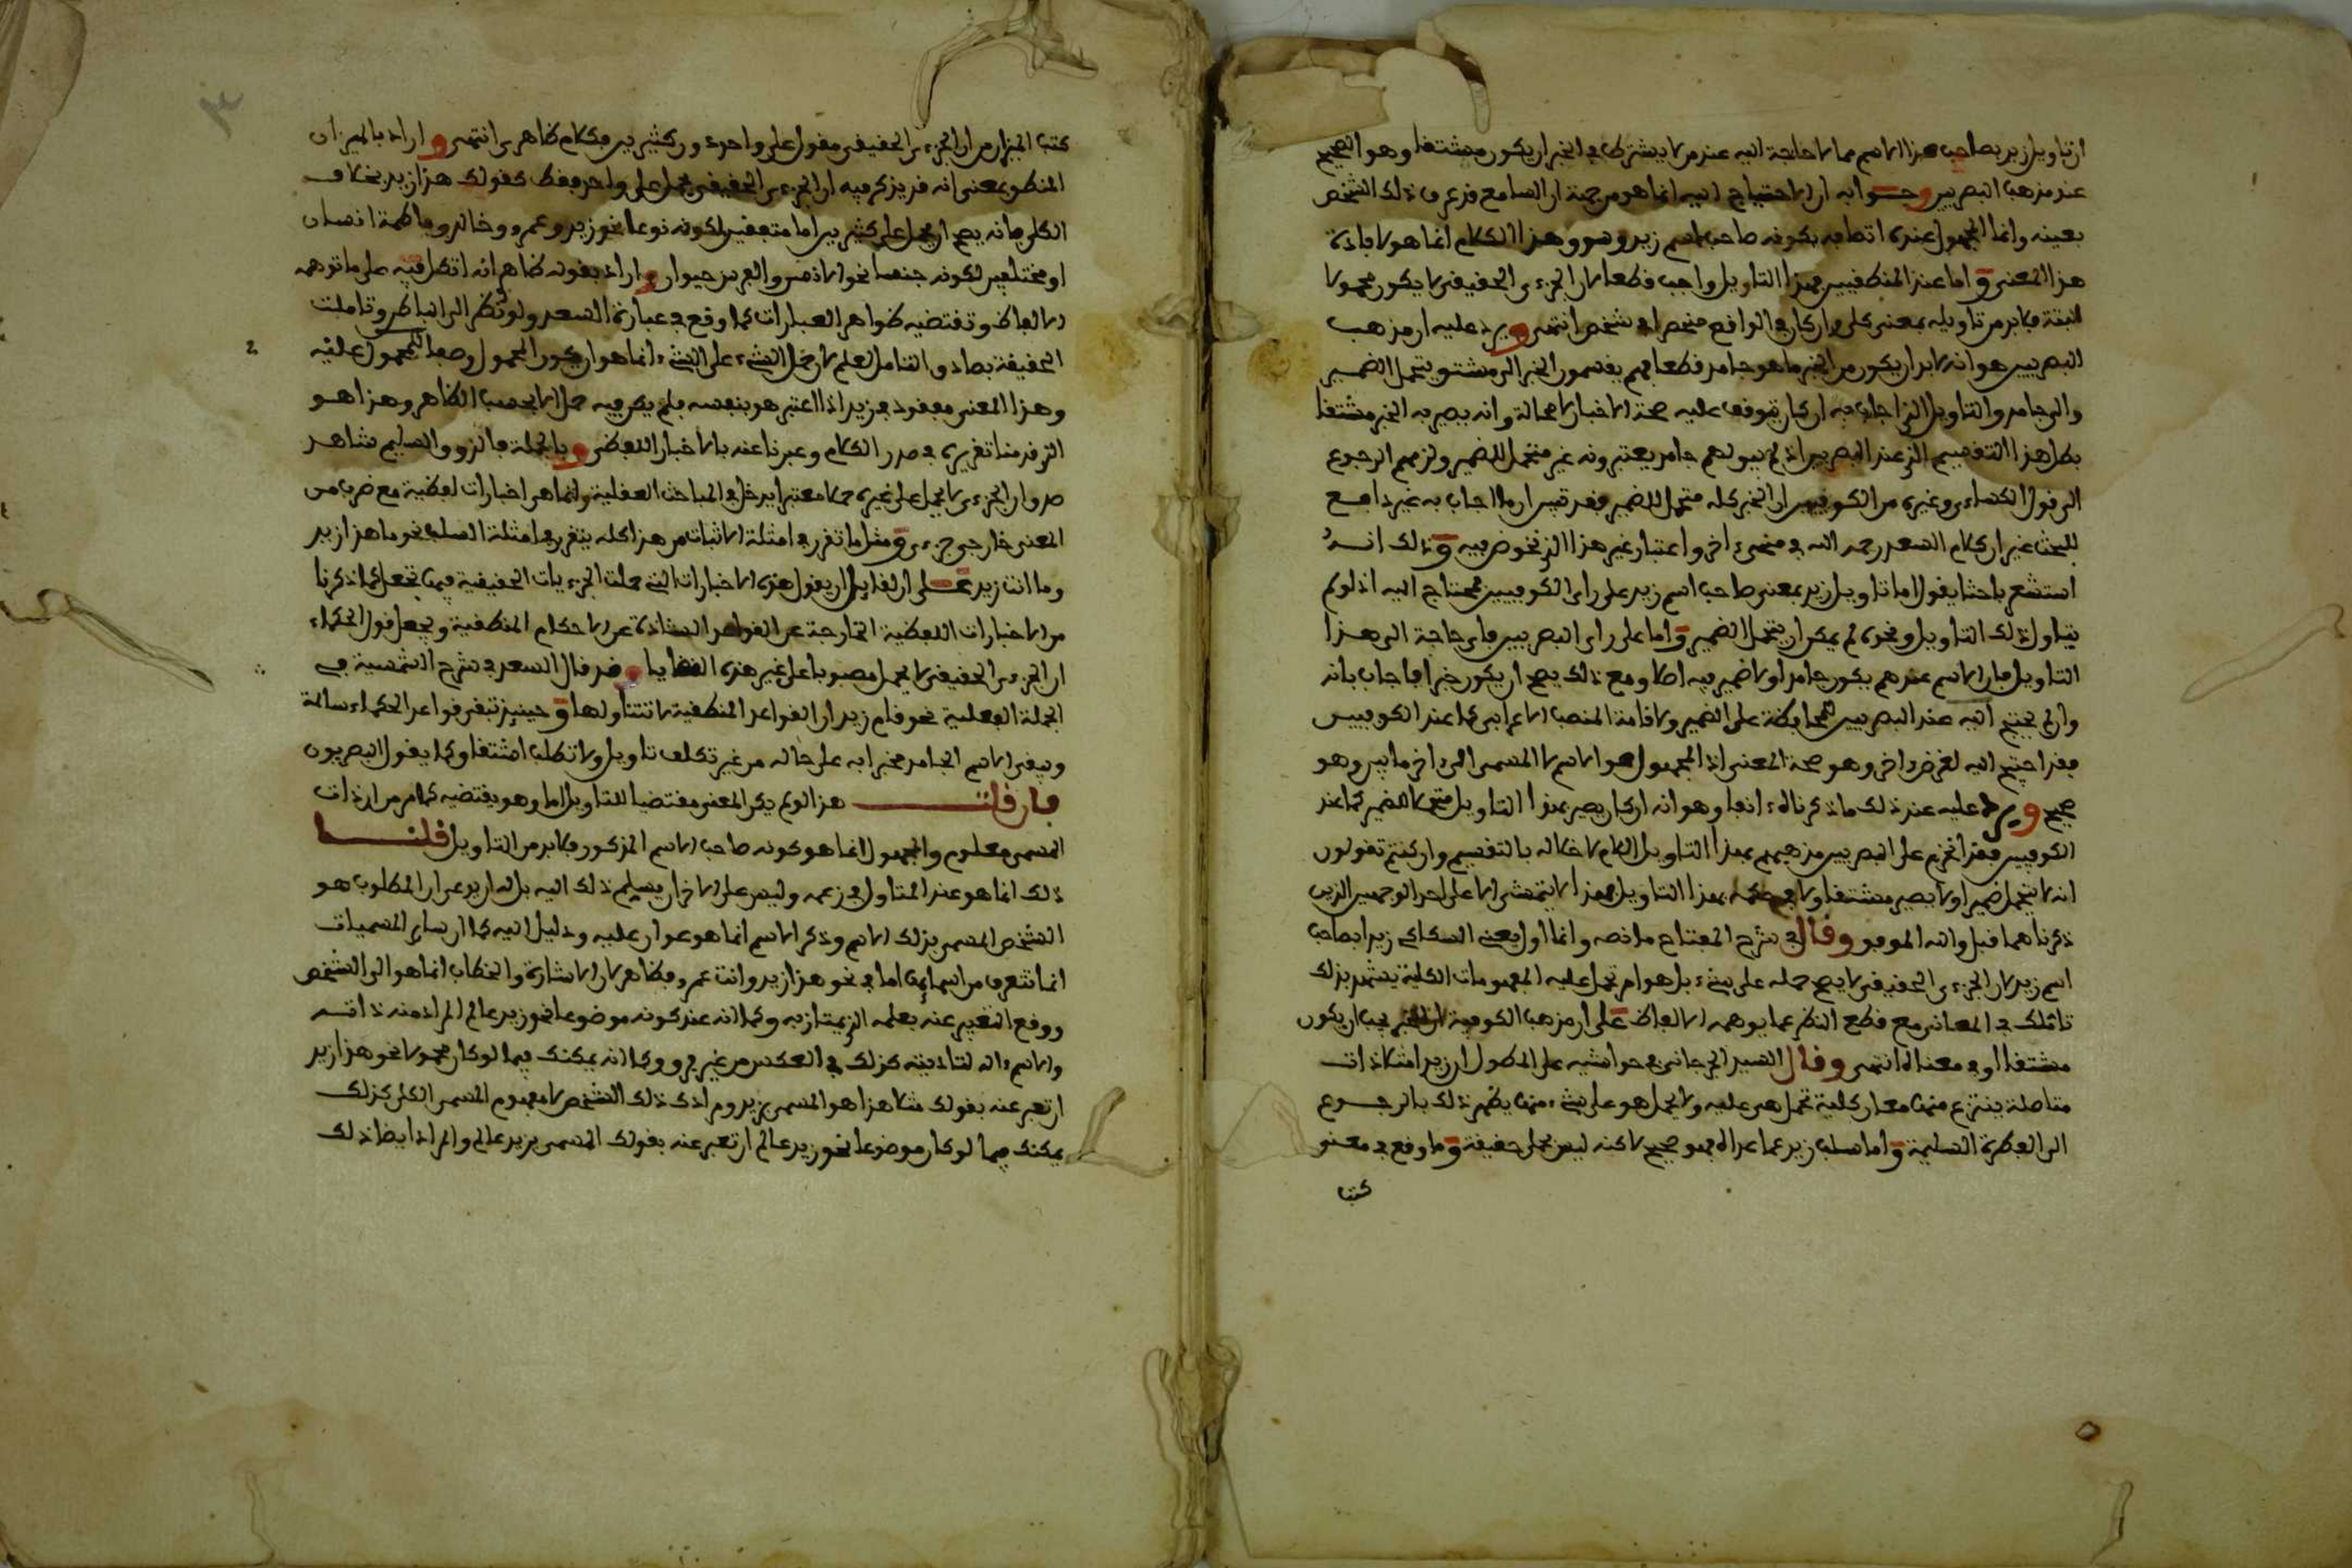 ان تاويل زيد بصاحب هذا الاسم مما لا حاجة اليه عند من لا يشترط في الخبر ان يكون مشتقا وهو الصحيح
عند مذهب البصريين وجوابه ان الاحتياج اليه انما هو من جهة ان السامع قد عرف ذلك الشخص
بعينه وانما المجهول عنده اتصافه بكونه صاحب اسم زيد وسوق هذا الكلام انما هو لافادة
هذا المعنى واما عند المنطقيين فهذا التاويل واجب قطعا لان الجزءي الحقيقي لا يكون محمولا
البتة فلابد من تاويله بمعنى كلي وان كان في الواقع منحصرا في شخص انتهى ويرد عليه ان مذهب
البصريين هو انه لابد ان يكون من الخبر ما هو جامد قطعا فهم يقسمون الخبر الى مشتق يتحمل الضمير
والى جامد والتاويل الذي اجاب به ان كان تتوقف عليه صحة الاخبار لا محالة وانه يصير به الخبر مشتقا
بطل هذا التقسيم الذي عند البصريين اذ لم يبق لهم جامد يعتبرونه غير متحمل للضمير ولزمهم الرجوع
الى قول الكساءي وغيره من الكوفيين ان الخبر كله متحمل للضمير فقد تبين ان ما اجاب به غير دافع
للبحث غير ان كلام السعد رحمه الله في منحىء اخر واعتبار غير هذا الذي نخوض فيه وذلك انه
استشعر باحثا يقول اما تاويل زيد بمعنى صاحب اسم زيد على راي الكوفيين فمحتاج اليه اذ لو لم
يتاول ذلك التاويل ونحوه لم يمكن ان يتحمل الضمير واما على راي البصريين فاي حاجة الى هذا
التاويل فان الاسم عندهم يكون جامدا ولا ضمير فيه اصلا ومع ذلك يصح ان يكون خبرا فاجاب بانه
وان لم يحتج اليه عند البصريين للمحافظة على الضمير ولاقامة المنصب الاعرابي كما عند الكوفيين
فقد احتيج اليه لغرض اخر وهو صحة المعنى اذ المجهول هو الاسم لا المسمى الى ءاخر ما بين وهو
صحيح ويرد عليه عند ذلك ما ذكرناه ءانفا وهو انه ان كان يصير بهذا التاويل متحملا للضمير كما عند
الكوفيين فقد انخرم على البصريين مذهبهم بهذا التاويل اللازم لا محالة بالتقسيم وان كنتم تقولون
انه لا يتحمل ضميرا ولا يصير مشتقا ولا في حكمه بهذا التاويل فهذا لا يتمشى الا على احد الوجهين الذين
ذكرناهما قبل والله الموفق وقال في شرح المفتاح ما نصه وانما اول يعني السكاكي زيدا بصاحب
اسم زيد لان الجزءي الحقيقي لا يصح حمله على شيء بل هو ام تحمل عليه المفهومات الكلية يشهد بذلك
تاملك في المعاني مع قطع النظر عما يوهمه الالفاظ على ان مذهب الكوفية ان الخبر يجب ان يكون
مشتقا او في معناه انتهى وقال السيد الجرجاني في حواشيه على المطول ان زيدا مثلا ذات
متاصلة ينتزع منها معان كلية تحمل هي عليه ولا يحمل هو على شيء منها يظهر ذلك بالرجوع
الى الفطرة السليمة واما سلب زيد عما عداه فهو صحيح لاكنه ليس بحمل حقيقة وما وقع في معنى
كتب
كتب الميزان من ان الجزءي الحقيقي مقول على واحد دون كثيرين فكلام ظاهري انتهى واراد بالميزان
المنطق بمعنى انه قد يذكر فيه ان الجزءي الحقيقي يحمل على واحد فقط كقولك هذا زيد بخلاف
الكلي فانه يصح ان يحمل على كثيرين اما متفقين لكونه نوعا نحو زيد وعمرو وخالد وفاطمة انسان
او مختلفين لكونه جنسا نحو الانس والفرس حيوان واراد بقوله ظاهر انه اتكل فيه على ما توهمه
الالفاظ وتقتضيه ظواهر العبارات كما وقع في عبارة السعد ولو نظر الى الباطن وتاملت
الحقيقة بصادق التامل لعلم ان حمل الشيء على الشيء انما هو ان يكون المحمول وصفا للمحمول عليه
وهذا المعنى مفقود في زيد اذا اعتبر هو بنفسه فلم يكن فيه حمل الا بحسب الظاهر وهذا هو
الذي قدمنا تقريره في صدر الكلام وعبرنا عنه بالاخبار اللفظي وبالجملة فالذوق السليم شاهد
صدق ان الجزءي لا يحمل على غيره حملا معتبرا يدخل في المباحث العقلية وانما هي اخبارات لفظية مع ضرب من
المعنى خارجي جزءي ومثل ما تقرر في امثلة الاثبات من هذا كله يتقرر في امثلة السلب نحو ما هذا زيد
وما انت زيد على ان لقايل ان يقول هذه الاخبارات التي حملت الجزءيات الحقيقية فيها تجعل كما ذكرنا
من الاخبارات اللفظية الخارجة عن القواعد الشاذة عن الاحكام المنطقية ويجعل قول الحكماء
ان الجزءي الحقيقي لا يحمل مصبوبا على غير هذه القضايا وقد قال السعد في شرح الشمسية في
الجملة الفعلية نحو قام زيد ان القواعد المنطقية لا تتناولها وحينيذ تبقى قواعد الحكماء سالمة
ويبقى الاسم الجامد مخبرا به على حاله من غير تكلف تاويل ولا تطلب اشتقاق كما يقول البصريون
فان قلت هذا لو لم يكن المعنى مقتضيا للتاويل اما وهو يقتضيه كما مر من ان ذات
المسمى معلوم والمجهول انما هو كونه صاحب الاسم المذكور فلابد من التاويل قلنا
ذلك انما هو عند المتاول في زعمه وليس على الاخر ان يسلم ذلك اليه بل له ان يدعي ان المطلوب هو
الشخص المسمى بذلك الاسم وذكر الاسم انما هو عنوان عليه ودليل اليه كما ان ساير المسميات
انما تتعرف من اسمايها اما في نحو هذا زيد وانت عمرو فظاهر لان الاشارة والخطاب انما هو الى الشخص
ووقع التعبير عنه بعلمه الذي يمتاز به وكما انه عند كونه موضوعا نحو زيد عالم المراد منه ذاته
والاسم ءالة لتاديته كذلك في العكس من غير فرق وكما انه يمكنك فيما لو كان محمولا نحو هذا زيد
ان تعبر عنه بقولك مثلا هذا هو المسمى بزيد ومرادك ذلك الشخص لا مفهوم المسمى الكلي كذلك
يمكنك فيما لو كان موضوعا نحو زيد عالم ان تعبر عنه بقولك المسمى بزيد عالم والمراد ايضا ذلك